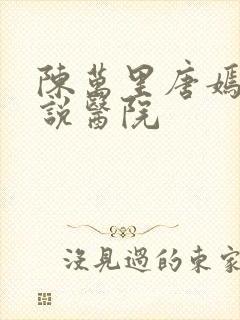 陳萬里唐嫣
說醫院
沒見過的東家